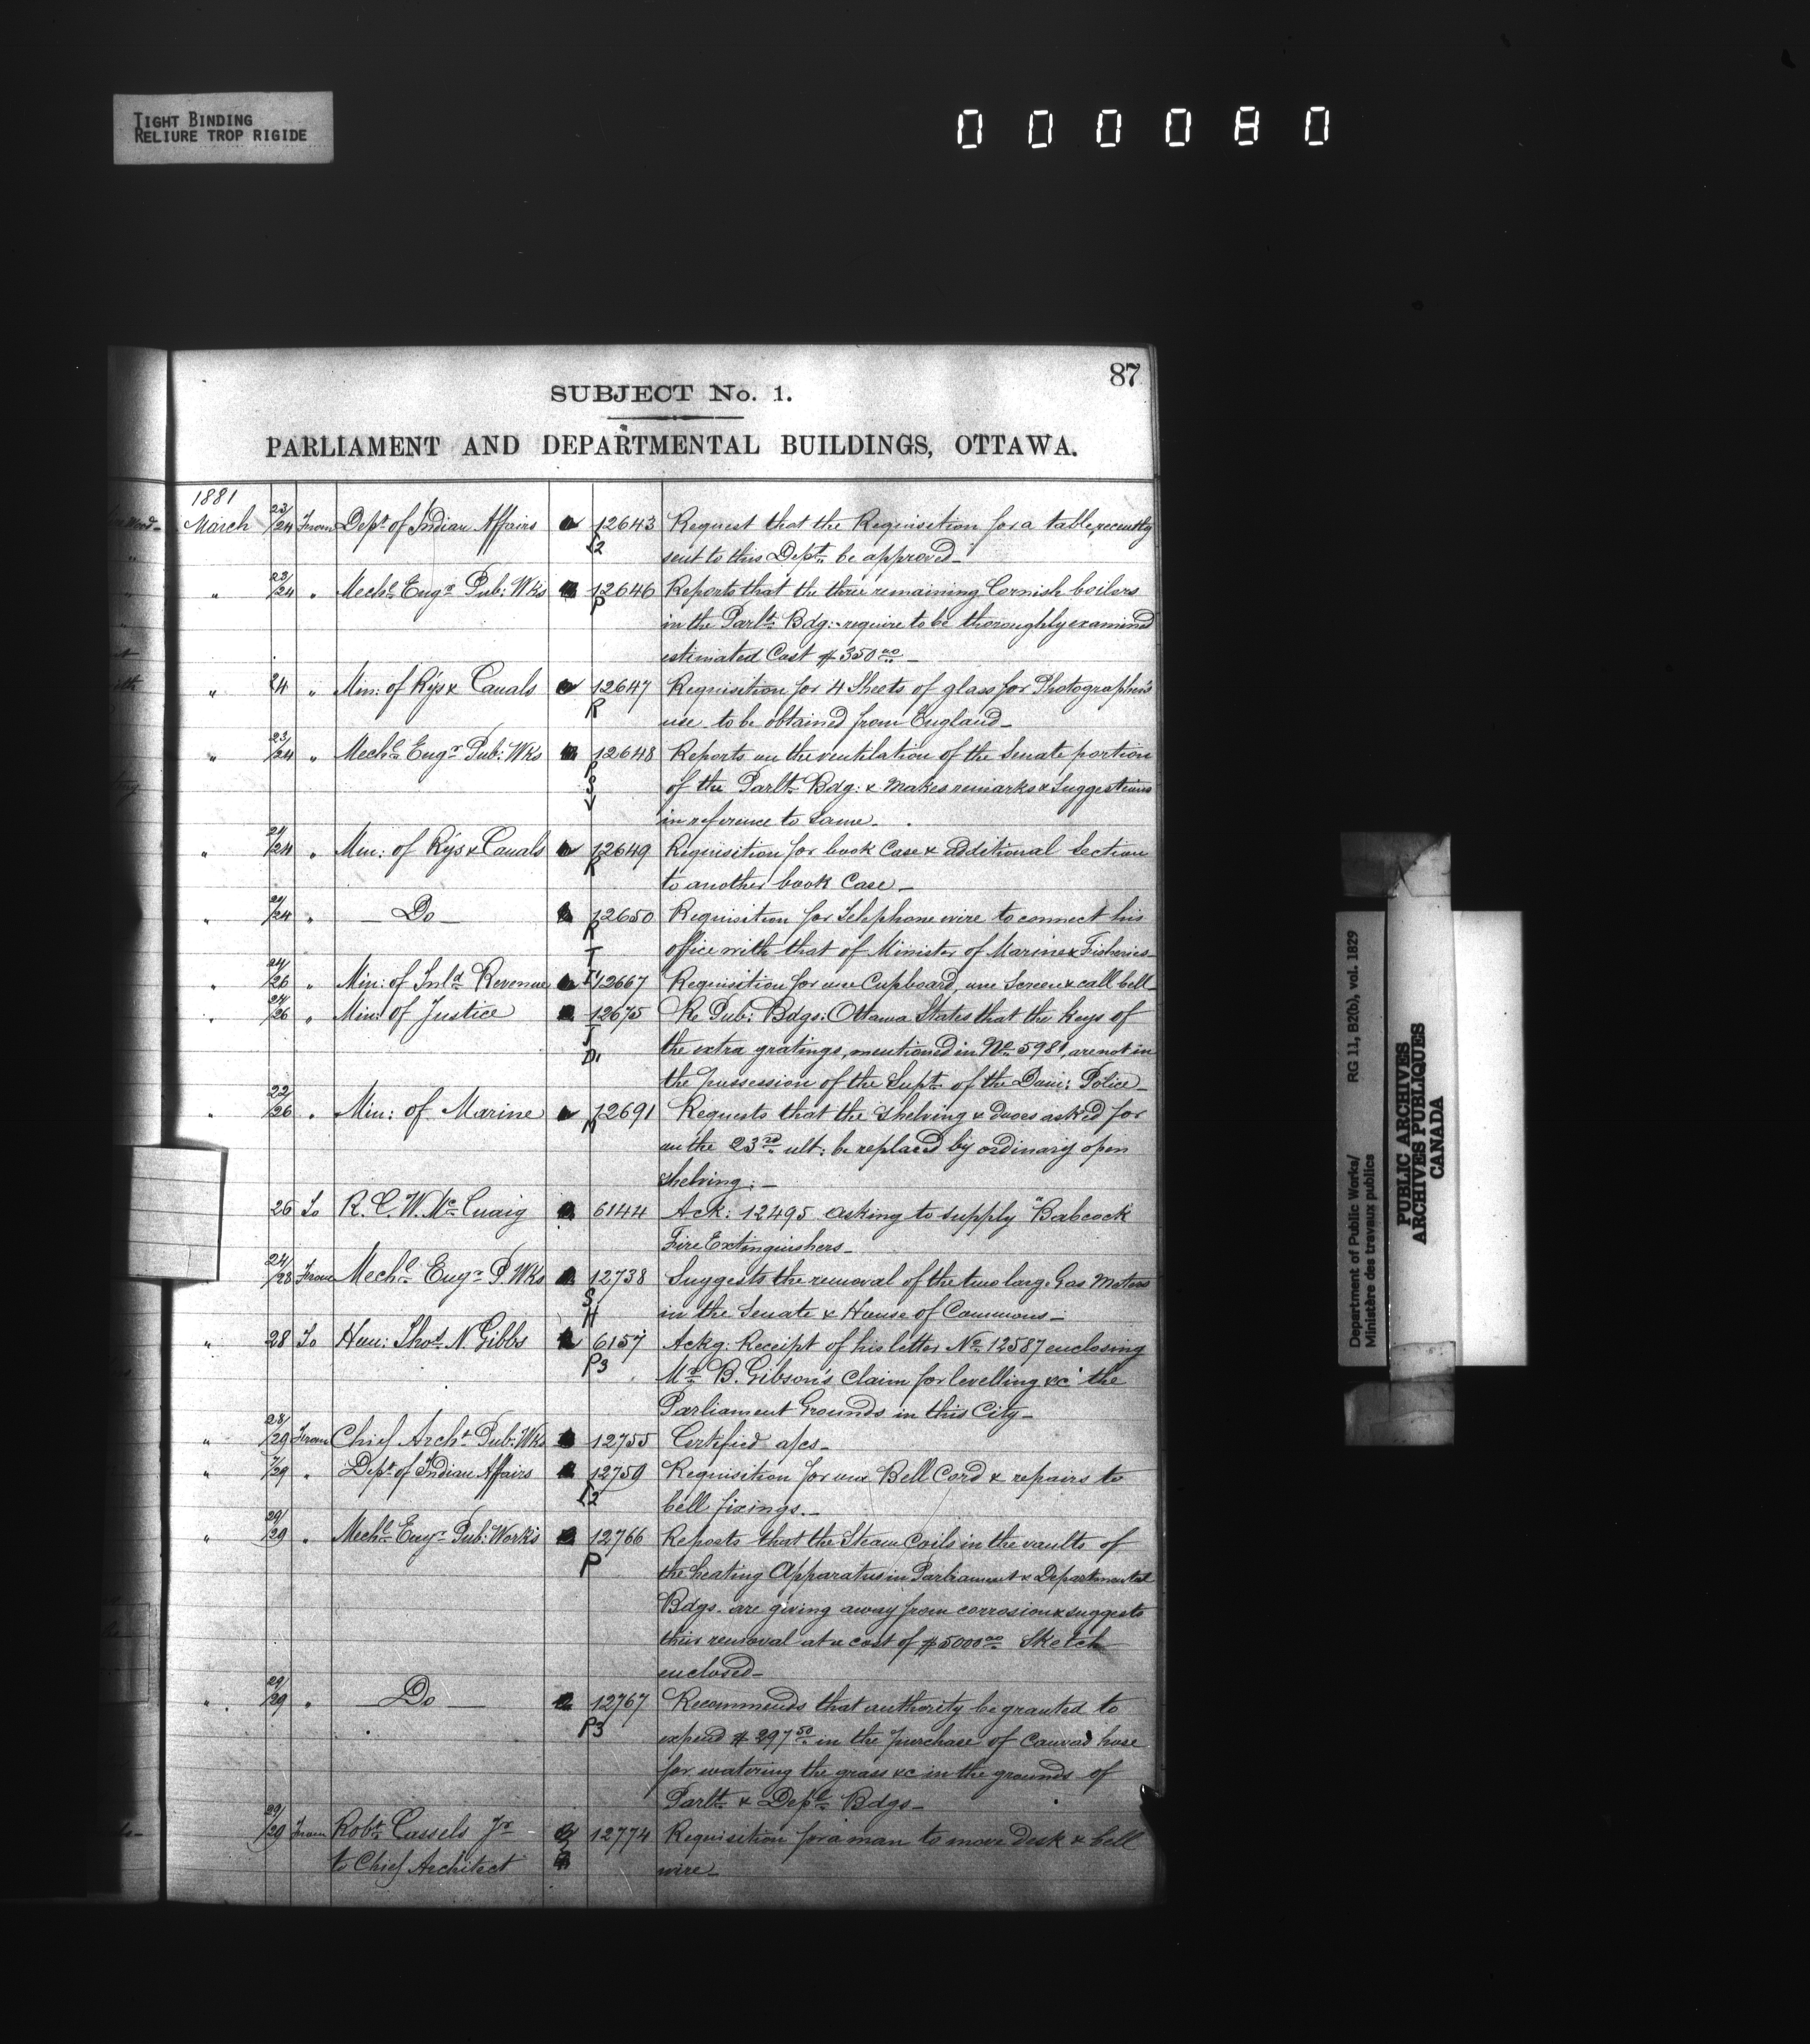 TIGHT BINDING
RELIURE TROP RIGIDE
000080
87
SUBJECT No. 1.
PARLIAMENT AND DEPARTMENTAL BUILDINGS, OTTAWA.
1881
March 23/24 From Dept of Indian Affairs 12643 Request that the Requisition for a table, recently
I2 sent to this Dept. be approved_
" 23/24 " Mechl Engr Pub: Wks 12646 Reports that the three remaining Cornish boilers
P in the Parlt. Bdg: require to be thoroughly examined
estimated Cost $350 00 _
" 24 " Min: of Rys & Canals 12647 Requisition for 4 Sheets of glass for Photographers
R use to be obtained from England_
" 23/24 " Mechl Engr Pub: Wks 12648 Reports on the ventilation of the Senate portion
P S V of the Parlt. Bdg: & makes remarks & Suggestions
in reference to Same.
" 24/24 " Min: of Rys & Canals 12649 Requisition for book Case & additional Section
R to another book Case_
" 24/24 " _Do_ 12650 Requisition for Telephone wire to connect his
R T office with that of Minister of Marine & Fisheries_
" 24/26 " Min: of Inld Revenue I' 12667 Requisition for one Cupboard, one Screen & call bell_
" 24/26 " Min: of Justice 12675 Re Pub: Bdgs: Ottawa States that the keys of
J the extra gratings, mentioned in No 5981, are not in
D' the possession of the Supt of the Dom: Police_
" 22/26 " Min: of Marine 12691 Requests that the Shelving & doors asked for
M on the 23rd ult: be replaced by ordinary open
Shelving:_
26 To R. C. W. McCuaig 6144 Ack: 12495 asking to supply "Babcock
Fire Extinguishers_
24/28 From Mechl Engr P. Wks 12738 Suggests the removal of the two large Gas Meters
S H in the Senate & House of Commons_
" 28 To Hon: Thos. N. Gibbs 6157 Ackg: Receipt of his letter No 12587 enclosing
P3 Mr B. Gibson's Claim for levelling &c the
Parliament Grounds in this City_
" 28/29 From Chief Archt Pub: Wks 12755 Certified a/cs_
" /29 " Dept of Indian Affairs 12759 Requisition for one Bell Cord & repairs to
I2 bell fixings._
" 29/29 " Mechl Engr Pub: Works 12766 Reports that the Steam Coils in the vaults of
P the heating Apparatus in Parliament & Departmental
Bdgs. are giving away from corrosion & suggests
their removal at a cost of $5000 00 Sketch
enclosed_
" 29/29 " _Do_ 12767 Recommends that authority be granted to
P3 expend $297 50 in the purchase of Canvas hose
for watering the grass &c in the grounds of
Parlt. & Deptl Bdgs_
29/29 From Robt. Cassels Jr 12774 Requisition for a man to move Desk & bell
to Chief Architect wire_
Department of Public Works/ RG 11, B2(b), vol. 1829
Ministère des travaux publics
PUBLIC ARCHIVES
ARCHIVES PUBLIQUES
CANADA